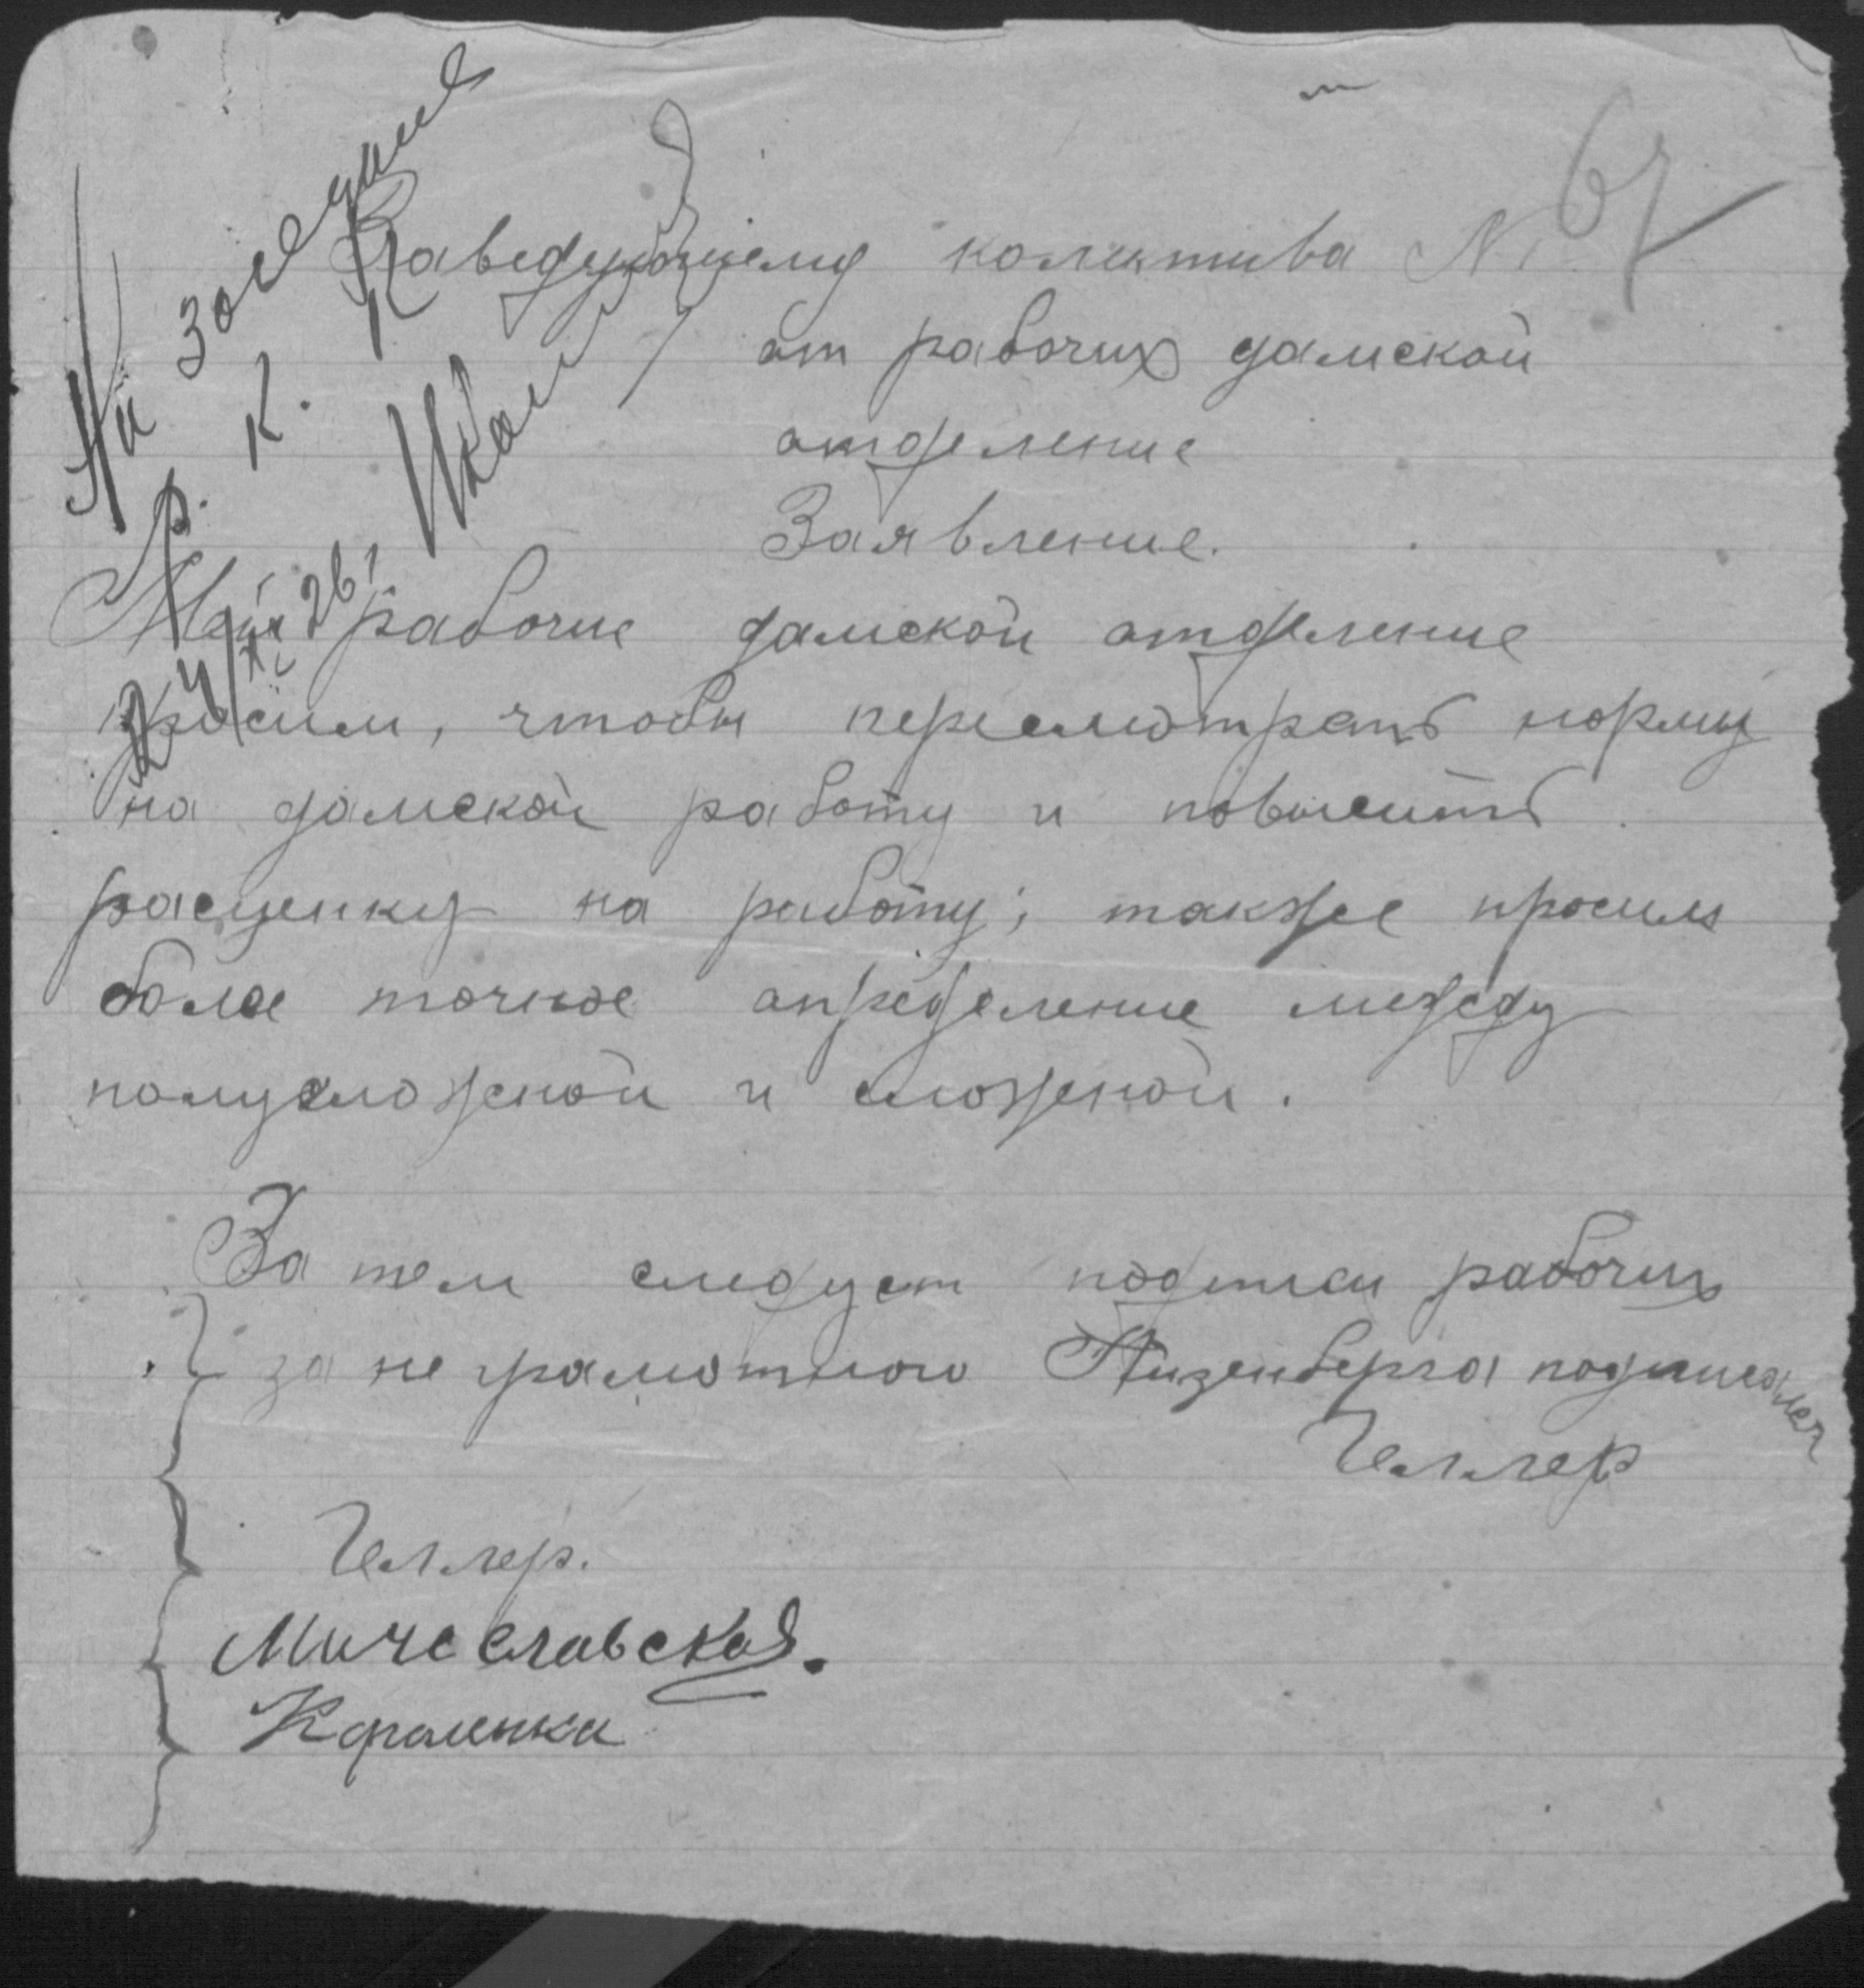 67
На заседание
Р. К. К.
24/XI 26 г.
Заведующему колектива N 1
от рабочих дамской
отделение
Заявление.
Мы рабочие дамской отделение
просим, чтобы пересмотреть норму
на дамской работу и повысить
расценку на работу; также просим
более точное определение между
полусложеной и сложеной.
За тем следует подписи рабочих
за не грамотного Айзенберга подписался
Геллер
Геллер.
Мичеславская.